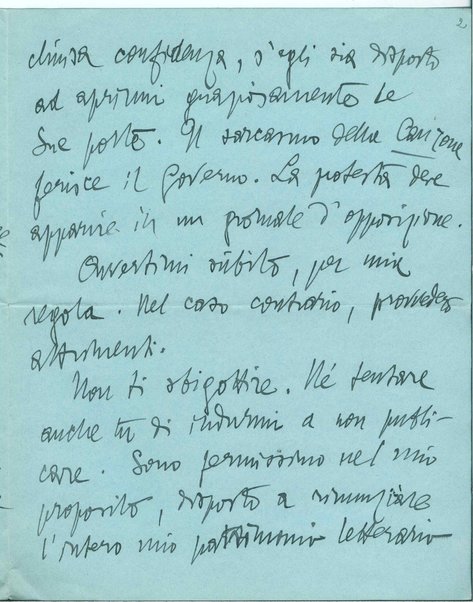 2
chiusa confidenza, s'egli sia disposto
ad aprirmi graziosamente le
sue porte. Il sarcasmo della Canzone
ferisce il Governo. La protesta deve
apparire in un giornale d'opposizione.
Avvertimi sùbito, per mia
regola. Nel caso contrario, provvederò
altrimenti.
Non ti sbigottire. Né tentare
anche tu di indurmi a non pubbli-
care. Sono fermissimo nel mio
proposito, disposto a rinunziare
l'intero mio patrimonio letterario